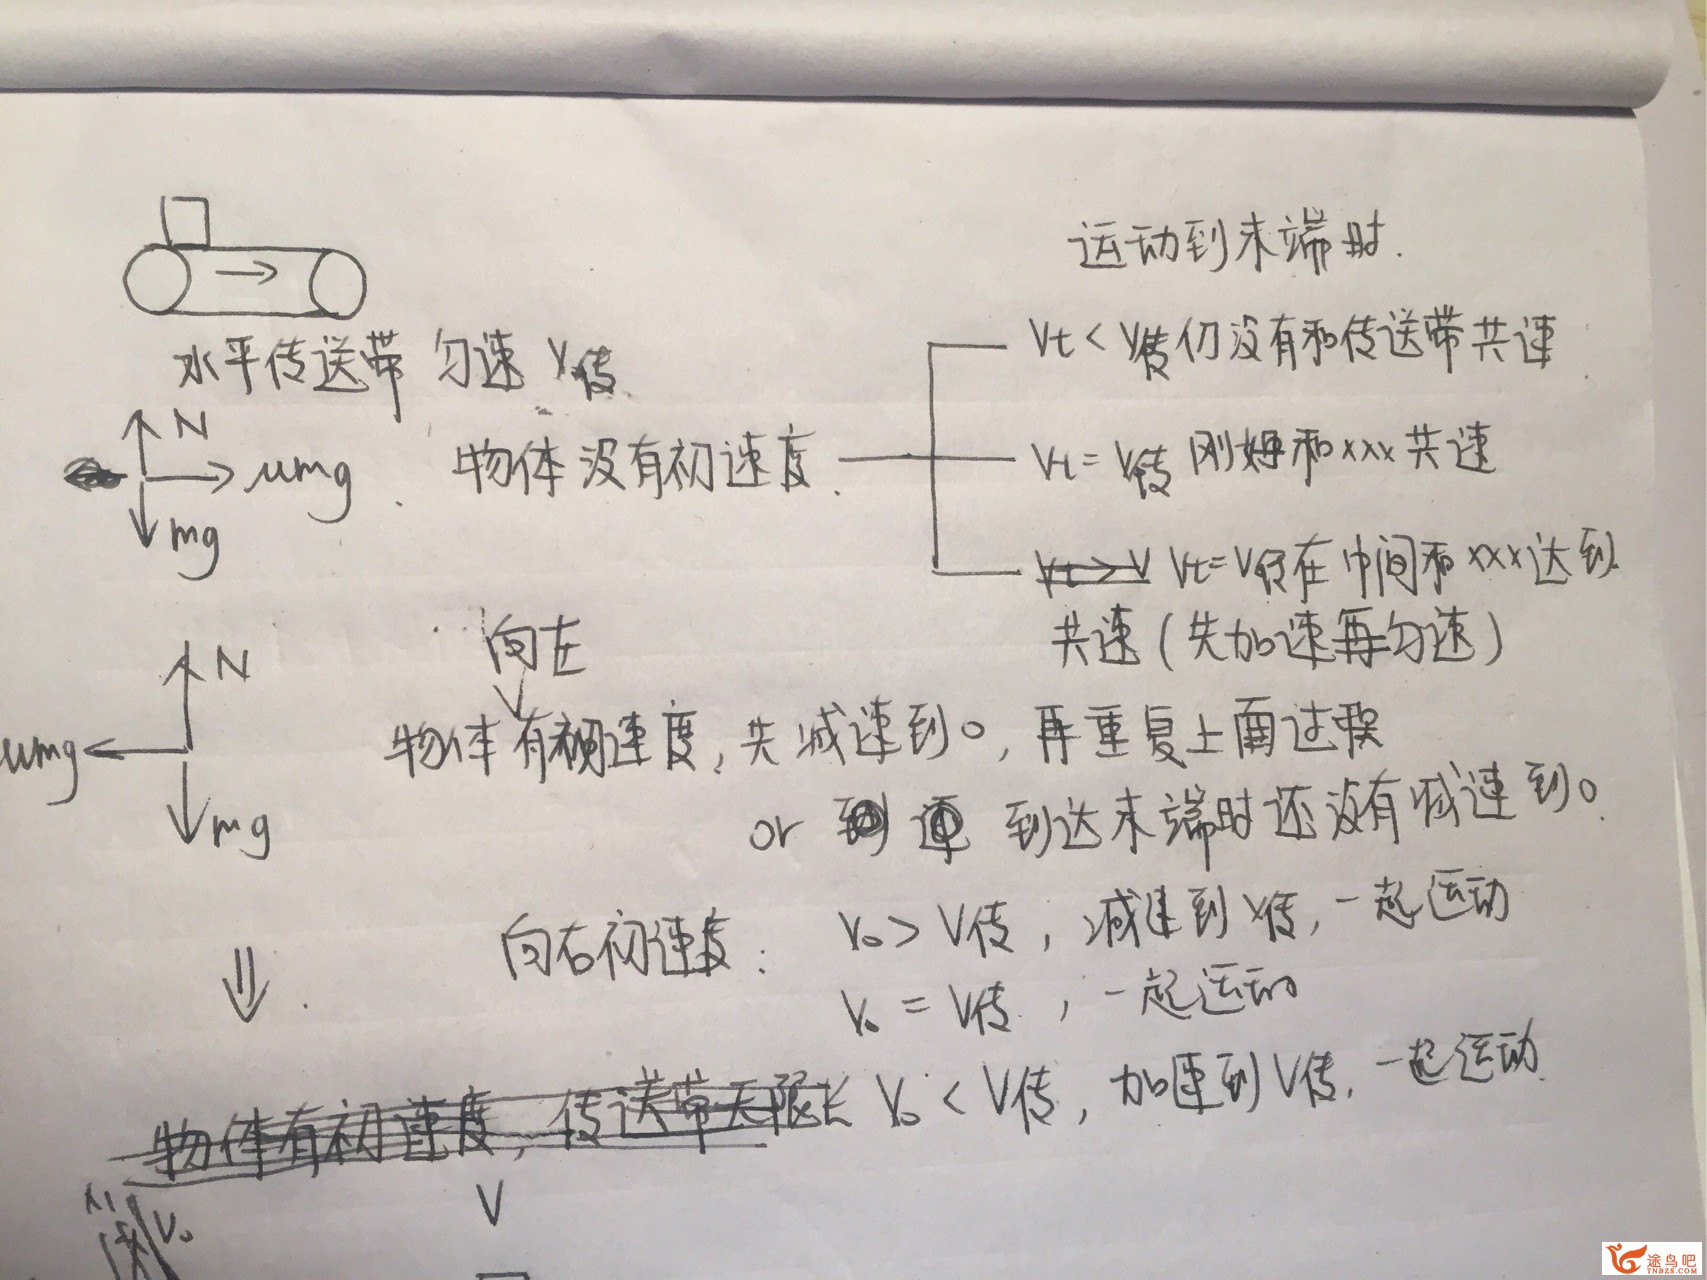 运动到末端时.
水平传送带 匀速 V传
Vt < V传 仍没有和传送带共速
N
μmg
mg
物体没有初速度.
Vt = V传 刚好和xxx共速
Vt = V传 在中间和xxx达到
共速(先加速再匀速)
N
μmg
mg
向左
物体有初速度, 先减速到0, 再重复上面过程
or 到达末端时还没有减速到0.
向右初速度: V₀ > V传, 减速到V传, 一起运动
V₀ = V传, 一起运动
物体有初速度, 传送带无限长
V₀ < V传, 加速到V传, 一起运动
V₀
V
途鸟吧
TNBZS.COM